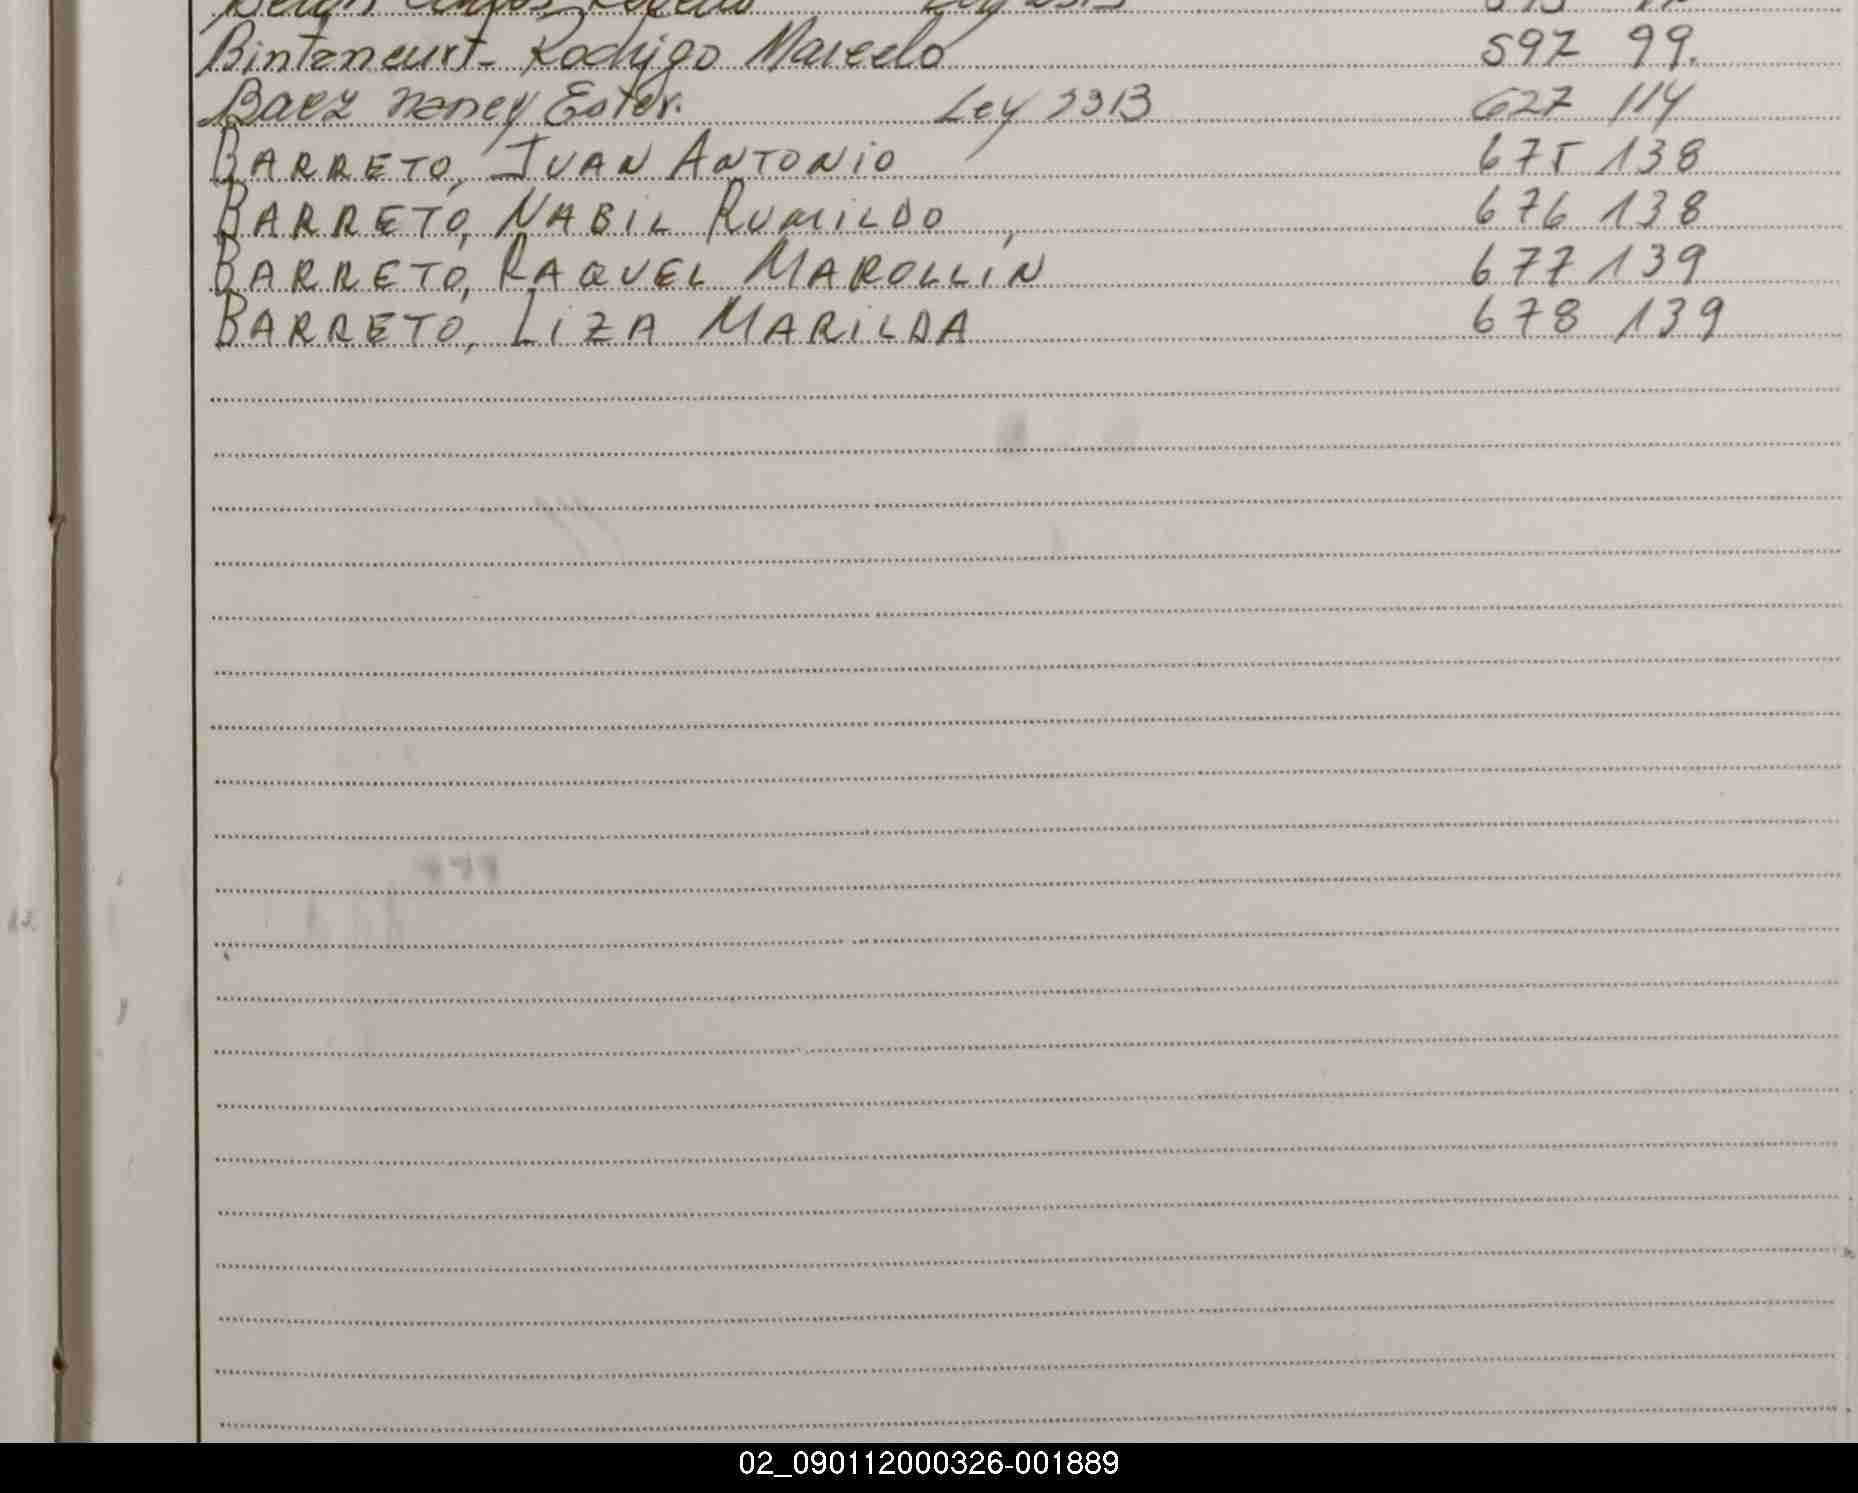 Rodrigo Marcelo 597 99.
Baez Nancy Ester. Ley 3313 627 114
BARRETO, JUAN ANTONIO 675 138
BARRETO, NABIL RUMILDO, 676 138
BARRETO, RAQUEL MAROLLIN 677 139
BARRETO, LIZA MARILDA 678 139
02_090112000326-001889